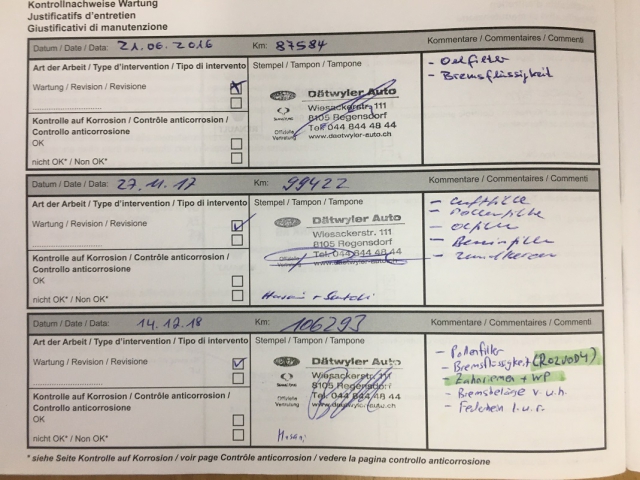 Kontrollnachweise Wartung
Justificatifs d'entretien
Giustificativi di manutenzione
Datum / Date / Data: 21.06.2016 Km: 87584 Kommentare / Commentaires / Commenti
Art der Arbeit / Type d'intervention / Tipo di intervento Stempel / Tampon / Tampone
- Oelfilter
- Bremsflüssigkeit
Wartung / Revision / Revisione
Dätwyler Auto
Wiesackerstr. 111
8105 Regensdorf
Tel. 044 844 48 44
www.daetwyler-auto.ch
Offizielle
Vertretung
Kontrolle auf Korrosion / Contrôle anticorrosion /
Controllo anticorrosione
OK
nicht OK* / Non OK*
Datum / Date / Data: 27.11.17 Km: 99422 Kommentare / Commentaires / Commenti
Art der Arbeit / Type d'intervention / Tipo di intervento Stempel / Tampon / Tampone
- Luftfilter
- Pollenfilter
- Oelfilter
- Benzinfilter
- Zündkerzen
Wartung / Revision / Revisione
Dätwyler Auto
Wiesackerstr. 111
8105 Regensdorf
Tel. 044 844 48 44
www.daetwyler-auto.ch
Kontrolle auf Korrosion / Contrôle anticorrosion /
Controllo anticorrosione
OK
nicht OK* / Non OK*
Datum / Date / Data: 14.12.18 Km: 106293 Kommentare / Commentaires / Commenti
Art der Arbeit / Type d'intervention / Tipo di intervento Stempel / Tampon / Tampone
- Pollenfilter
- Bremsflüssigkeit (ROZVODY)
- Zahnriemen + WP
- Bremsbeläge v.u.h.
Wartung / Revision / Revisione
Dätwyler Auto
Wiesackerstr. 111
8105 Regensdorf
Tel. 044 844 48 44
www.daetwyler-auto.ch
Offizielle
Vertretung
Kontrolle auf Korrosion / Contrôle anticorrosion /
Controllo anticorrosione
OK
nicht OK* / Non OK*
* siehe Seite Kontrolle auf Korrosion / voir page Contrôle anticorrosion / vedere la pagina controllo anticorrosione